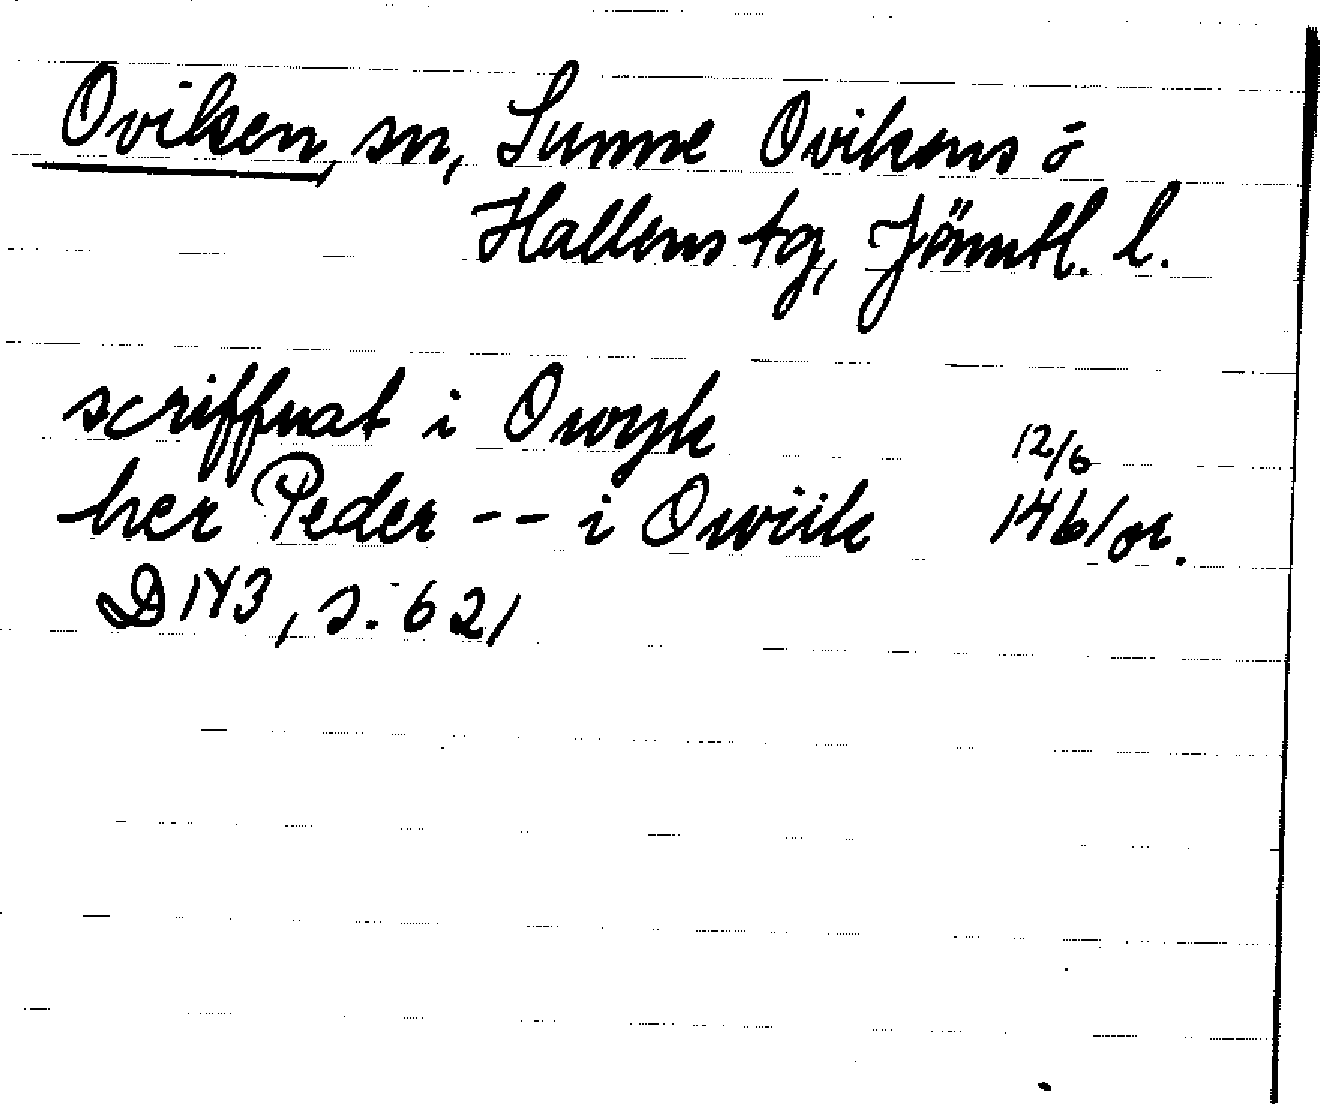 Oviken, sn, Sunne Ovikens o
Hallens tg, Jämtl. l.
scriffuat i Owyk 12/6
her Peder -- i Owiik 1461 or.
D 143, s. 621